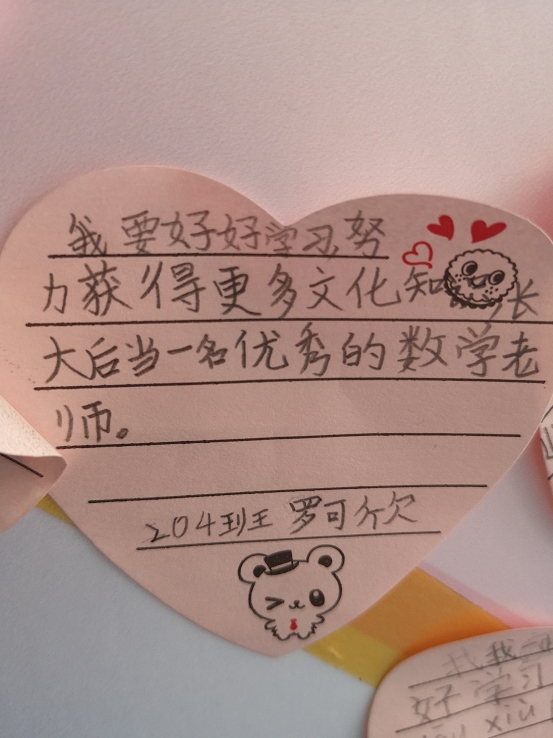 我要好好学习,努
力获得更多文化知 长
大后当一名优秀的数学老
师。
204班 罗可欣
我
好学习
xiù